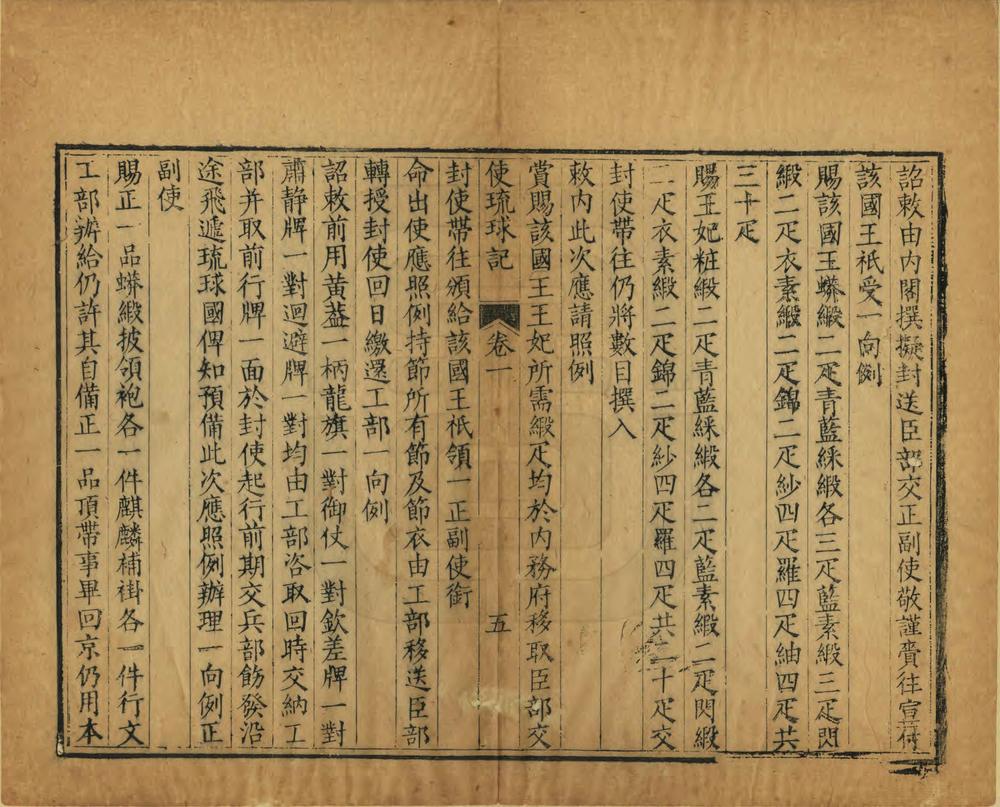 詔敕由内閣撰擬封送臣部交正副使敬謹賫往宣付
該國王祇受一向例
賜該國王蟒緞二疋青藍綵緞各三疋藍素緞三疋閃
緞二疋衣素緞二疋錦二疋紗四疋羅四疋紬四疋共
三十疋
賜王妃粧緞二疋青藍綵緞各二疋藍素緞二疋閃緞
二疋衣素緞二疋錦二疋紗四疋羅四疋共二十疋交
封使帶往仍將數目撰入
敕内此次應請照例
賞賜該國王王妃所需緞疋均於内務府移取臣部交
使琉球記 卷一 五
封使帶往頒給該國王祇領一正副使銜
命出使應照例持節所有節及節衣由工部移送臣部
轉授封使回日繳還工部一向例
詔敕前用黄葢一柄龍旗一對御仗一對欽差牌一對
肅静牌一對迴避牌一對均由工部咨取回時交納工
部并取前行牌一面於封使起行前期交兵部飭發沿
途飛遞琉球國俾知預備此次應照例辦理一向例正
副使
賜正一品蟒緞披領袍各一件麒麟補褂各一件行文
工部辦給仍許其自備正一品頂帶事畢回京仍用本